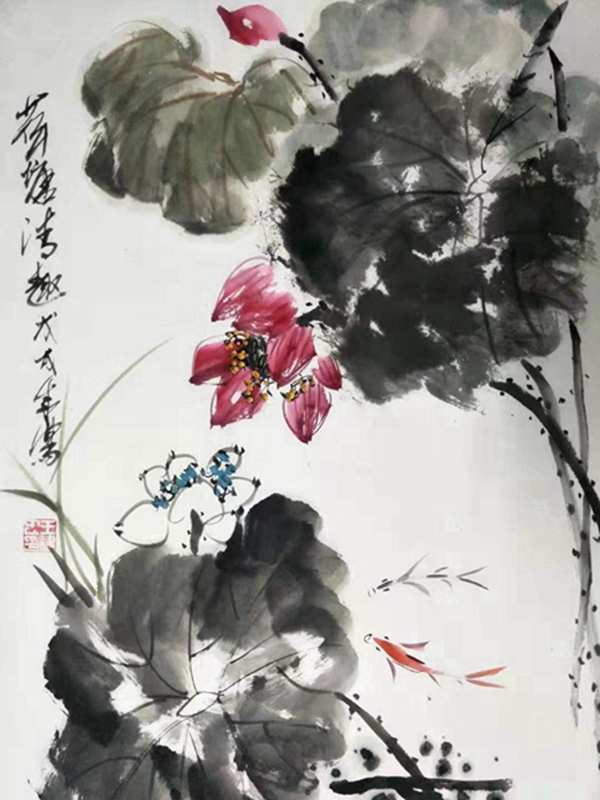 荷塘清趣戊戌年寫